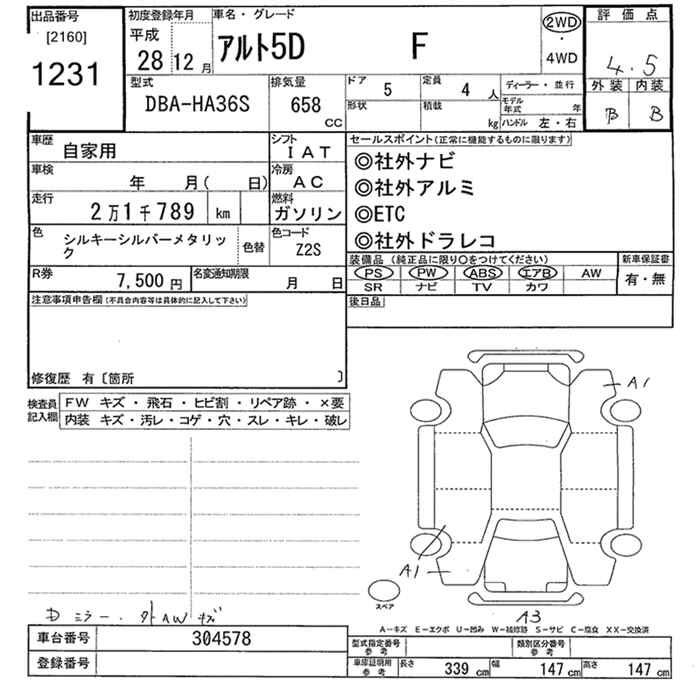 出品番号
[2160]
1231
初度登録年月
平成
28 12 月
車名・グレード
アルト5D F
2WD
・
4WD
評価点
4.5
外装 内装
B B
型式
DBA-HA36S
排気量
658
CC
ドア 5
定員 4 人
ディーラー・並行
形状
積載 kg
モデル年式 年
ハンドル 左・右
車歴 自家用
シフト IAT
車検 年 月( 日)
冷房 AC
走行 2万1千789 km
燃料 ガソリン
色 シルキーシルバーメタリック
色替
色コード Z2S
R券 7,500 円
名変通知期限 月 日
セールスポイント(正常に機能するものに限ります)
◎社外ナビ
◎社外アルミ
◎ETC
◎社外ドラレコ
装備品 (純正品に限り○をつけてください)
新車保証書
PS PW ABS エアB AW
SR ナビ TV カワ
有・無
後日品
注意事項申告欄(不具合内容等は具体的に記入して下さい)
修復歴 有〔箇所 〕
検査員記入欄
FW キズ・飛石・ヒビ割・リペア跡・×要
内装 キズ・汚レ・コゲ・穴・スレ・キレ・破レ
A1
A1
スペア
A3
D ミラー. 外AWキズ
A-キズ E-エクボ U-凹み W-補修跡 S-サビ C-腐食 XX-交換済
車台番号 304578
登録番号
型式指定番号 参考
類別区分番号 参考
車庫証明用 参考
長さ 339 cm
幅 147 cm
高さ 147 cm